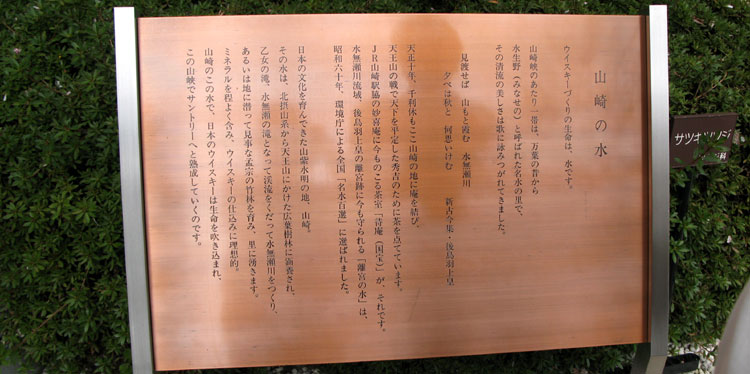 山崎の水
ウイスキーづくりの生命は、水です。
山崎峡のあたり一帯は、万葉の昔から
水生野（みなせの）と呼ばれた名水の里で、
その清流の美しさは歌に詠みつがれてきました。
見渡せば 山もと霞む 水無瀬川
夕べは秋と 何思いけむ
新古今集・後鳥羽上皇
天正十年、千利休もここ山崎の地に庵を結び、
天王山の戦で天下を平定した秀吉のために茶を点てています。
JR山崎駅脇の妙喜庵に今ものこる茶室「待庵（国宝）」が、それです。
水無瀬川流域、後鳥羽上皇の離宮跡に今も守られる「離宮の水」は、
昭和六十年、環境庁による全国「名水百選」に選ばれました。
日本の文化を育んできた山紫水明の地、山崎。
その水は、北摂山系から天王山にかけた広葉樹林に涵養され、
乙女の滝、水無瀬の滝となって渓流をくだって水無瀬川をつくり、
あるいは地に潜って見事な孟宗の竹林を育み、里に湧きます。
ミネラルを程よく含み、ウイスキーの仕込みに理想的。
山崎のこの水で、日本のウイスキーは生命を吹き込まれ、
この山峡でサントリーへと熟成していくのです。
サツキツツジ